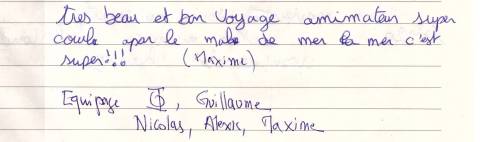 tres beau et bon voyage animateur super
coule apar le male de mer la mer c'est
super!!! (Maxime)
Equipage , Guillaume
Nicolas, Alexis, Maxime